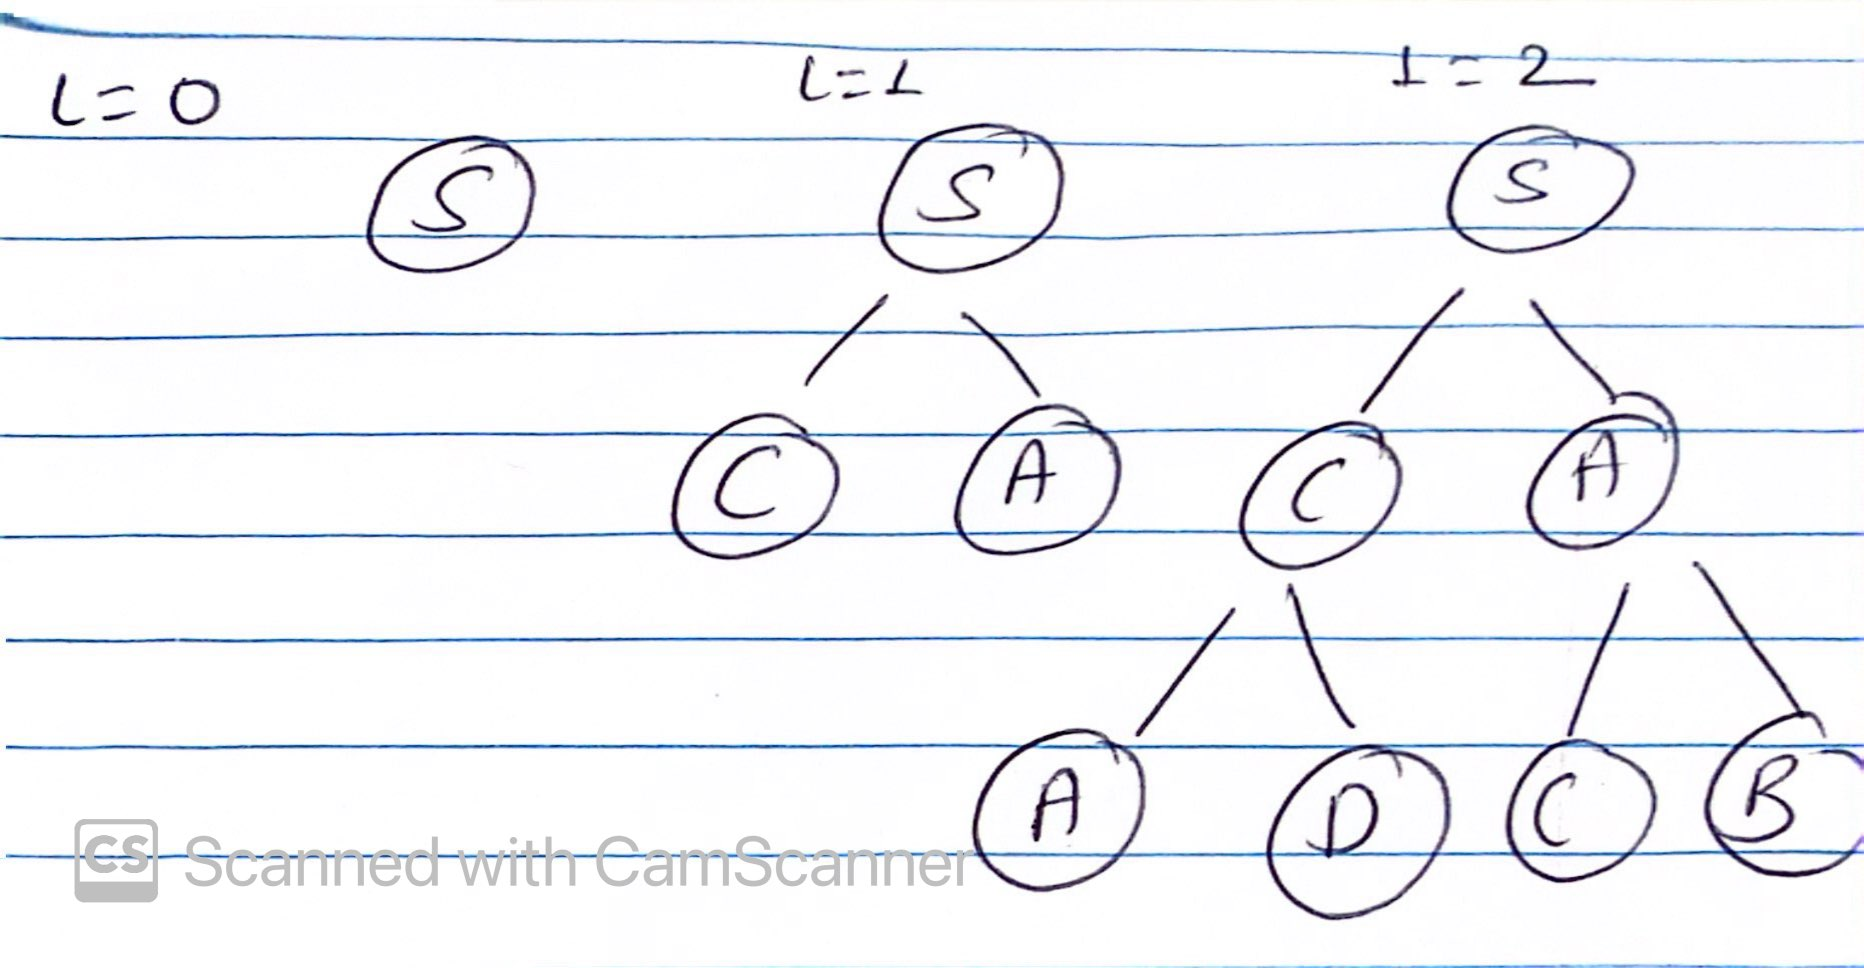 L=0 L=1 1=2
S S S
C A C A
A D C B
CS Scanned with CamScanner